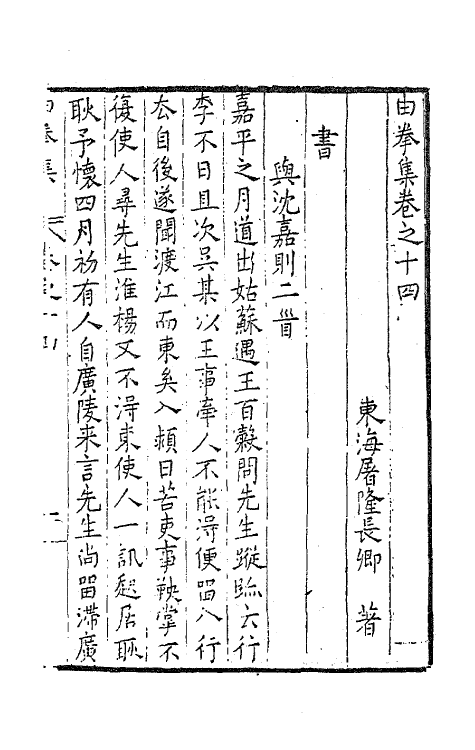 由拳集卷之十四
東海屠隆長卿 著
書
與沈嘉則二首
嘉平之月道出姑蘇遇王百穀問先生蹤跡云行
李不日且次吳某以王事牽人不能淂便留八行
去自後遂聞渡江而東矣入頻日苦吏事鞅掌不
復使人尋先生淮楊又不淂東使人一訊起居耿
耿予懷四月初有人自廣陵来言先生尚留滯廣